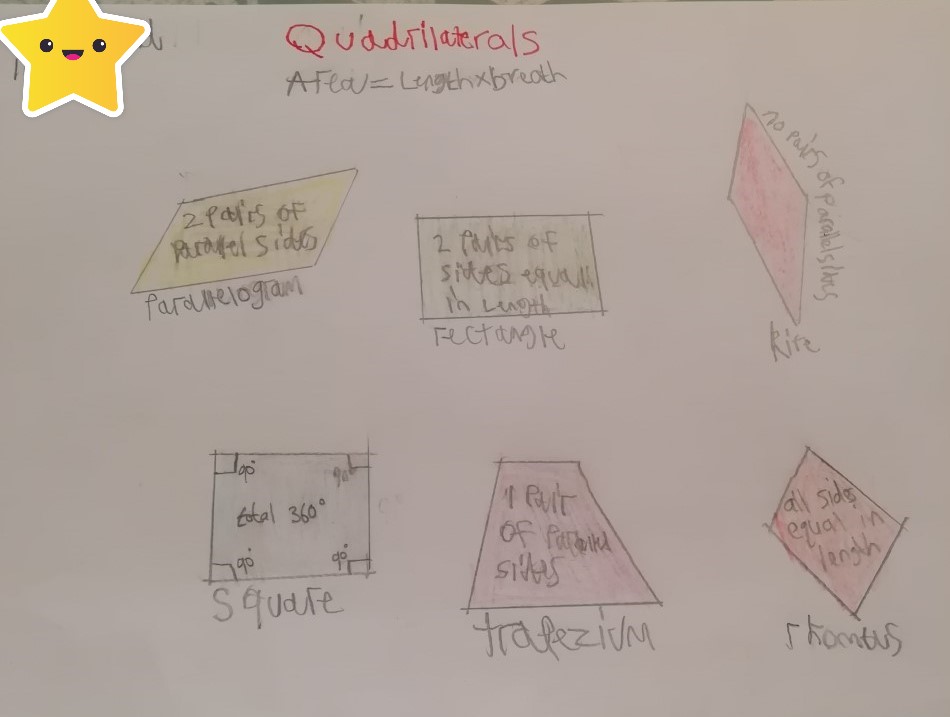 Quadrilaterals
Area = Length x breath
2 Pairs of
parallel sides
Parallelogram
2 Pairs of
sides equall
in Length
rectangle
20 pairs of parallel sides
kite
90°
90°
total 360°
90°
90°
Square
1 Pair
of Parallel
sides
trapezium
all sides
equal in
length
rhombus